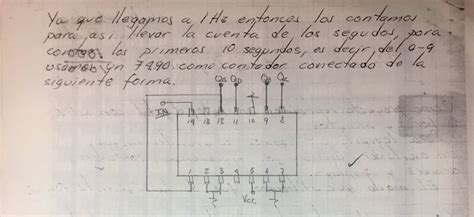 Ya que llegamos a 1Hs entonces los contamos
para, asi llevar la cuenta de los segudos, para
los primeros 10 segundos, es decir, del 0-9
usamos un 7490 como contador conectado de la
siguiente forma.
QA QD QB QC
IN
14 13 12 11 10 9 8
1 2 3 4 5 6 7
Vcc